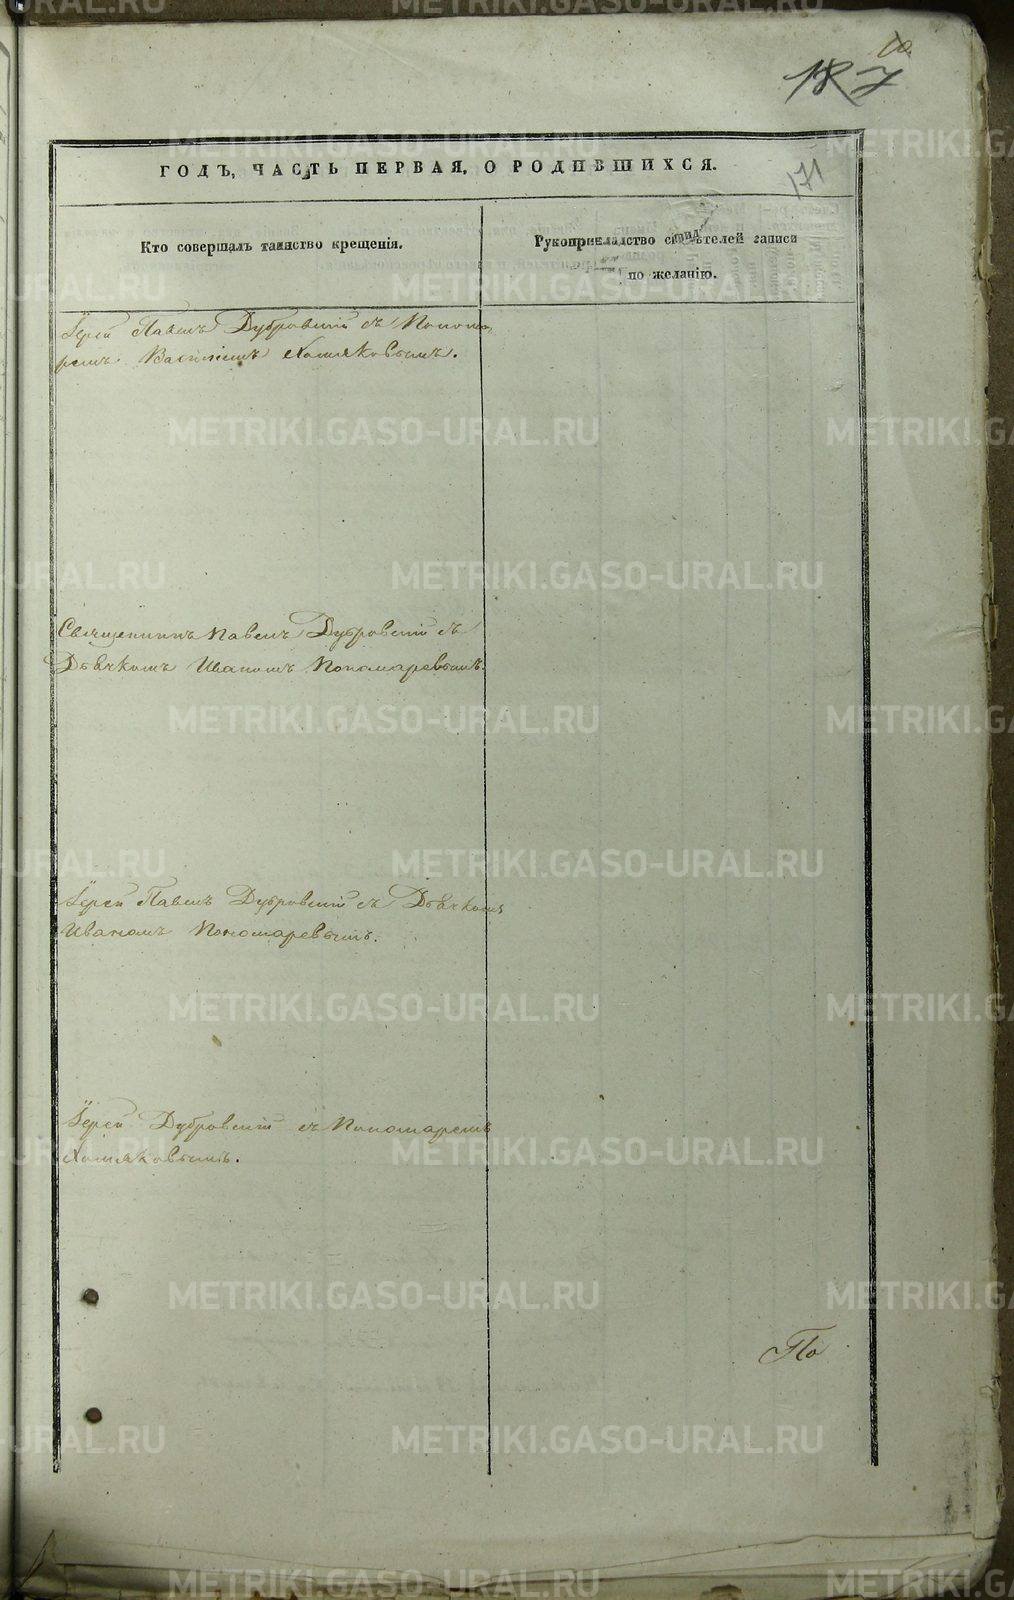 10.
187
171
ГОДЪ, ЧАСТЬ ПЕРВАЯ, О РОДИВШИХСЯ.
Кто совершалъ таинство крещенія.
Рукоприкладство свидѣтелей записи
по желанію.
Іерей Павелъ Дубровскій съ Понома-
ремъ Василіемъ Хомяковымъ.
Священникъ Павелъ Дубровскій съ
Дьячкомъ Иваномъ Пономаревымъ.
Іерей Павелъ Дубровскій съ Дьячкомъ
Иваномъ Пономаревымъ.
Іерей Дубровскій съ Пономаремъ
Хомяковымъ.
По
METRIKI.GASO-URAL.RU